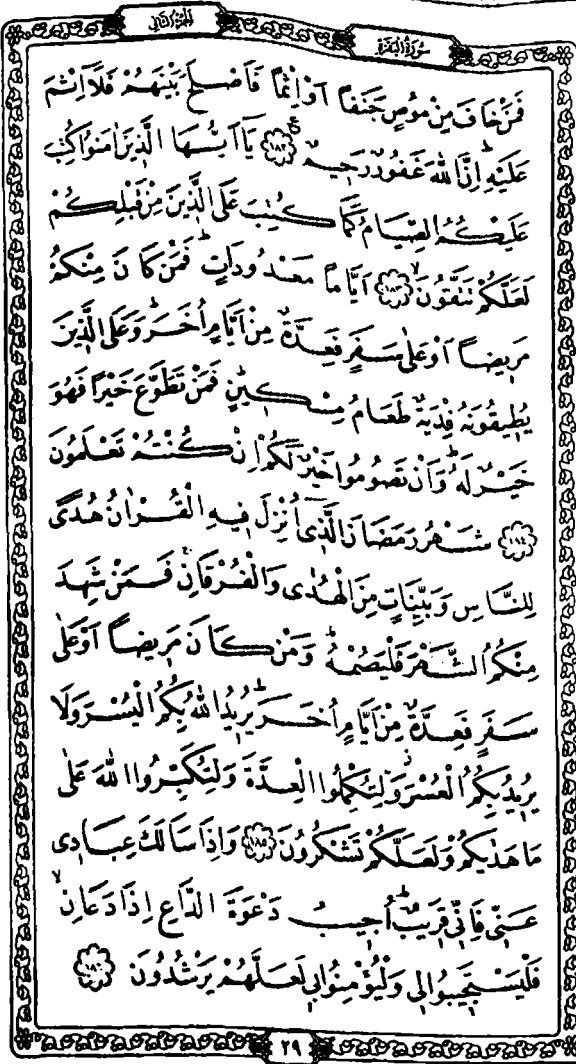 سُورَةُ الْبَقَرَةِ
اَلْجُزْءُ الثَّانِي
فَمَنْ خَافَ مِنْ مُوصٍ جَنَفاً اَوْ اِثْماً فَاَصْلَحَ بَيْنَهُمْ فَلَٓا اِثْمَ
عَلَيْهِۜ اِنَّ اللّٰهَ غَفُورٌ رَح۪يمٌ۟ ﴿١٨٢﴾ يَٓا اَيُّهَا الَّذ۪ينَ اٰمَنُوا كُتِبَ
عَلَيْكُمُ الصِّيَامُ كَمَا كُتِبَ عَلَى الَّذ۪ينَ مِنْ قَبْلِكُمْ
لَعَلَّكُمْ تَتَّقُونَۙ ﴿١٨٣﴾ اَيَّاماً مَعْدُودَاتٍۜ فَمَنْ كَانَ مِنْكُمْ
مَر۪يضاً اَوْ عَلٰى سَفَرٍ فَعِدَّةٌ مِنْ اَيَّامٍ اُخَرَۜ وَعَلَى الَّذ۪ينَ
يُط۪يقُونَهُ فِدْيَةٌ طَعَامُ مِسْك۪ينٍۜ فَمَنْ تَطَوَّعَ خَيْراً فَهُوَ
خَيْرٌ لَهُۜ وَاَنْ تَصُومُوا خَيْرٌ لَكُمْ اِنْ كُنْتُمْ تَعْلَمُونَ
﴿١٨٤﴾ شَهْرُ رَمَضَانَ الَّذ۪ٓي اُنْزِلَ ف۪يهِ الْقُرْاٰنُ هُدًى
لِلنَّاسِ وَبَيِّنَاتٍ مِنَ الْهُدٰى وَالْفُرْقَانِۚ فَمَنْ شَهِدَ
مِنْكُمُ الشَّهْرَ فَلْيَصُمْهُۜ وَمَنْ كَانَ مَر۪يضاً اَوْ عَلٰى
سَفَرٍ فَعِدَّةٌ مِنْ اَيَّامٍ اُخَرَۜ يُر۪يدُ اللّٰهُ بِكُمُ الْيُسْرَ وَلَا
يُر۪يدُ بِكُمُ الْعُسْرَۘ وَلِتُكْمِلُوا الْعِدَّةَ وَلِتُكَبِّرُوا اللّٰهَ عَلٰى
مَا هَدٰيكُمْ وَلَعَلَّكُمْ تَشْكُرُونَ ﴿١٨٥﴾ وَاِذَا سَاَلَكَ عِبَاد۪ي
عَنّ۪ي فَاِنّ۪ي قَر۪يبٌۜ اُج۪يبُ دَعْوَةَ الدَّاعِ اِذَا دَعَانِۙ
فَلْيَسْتَج۪يبُوا ل۪ي وَلْيُؤْمِنُوا ب۪ي لَعَلَّهُمْ يَرْشُدُونَ ﴿١٨٦﴾
٢٩